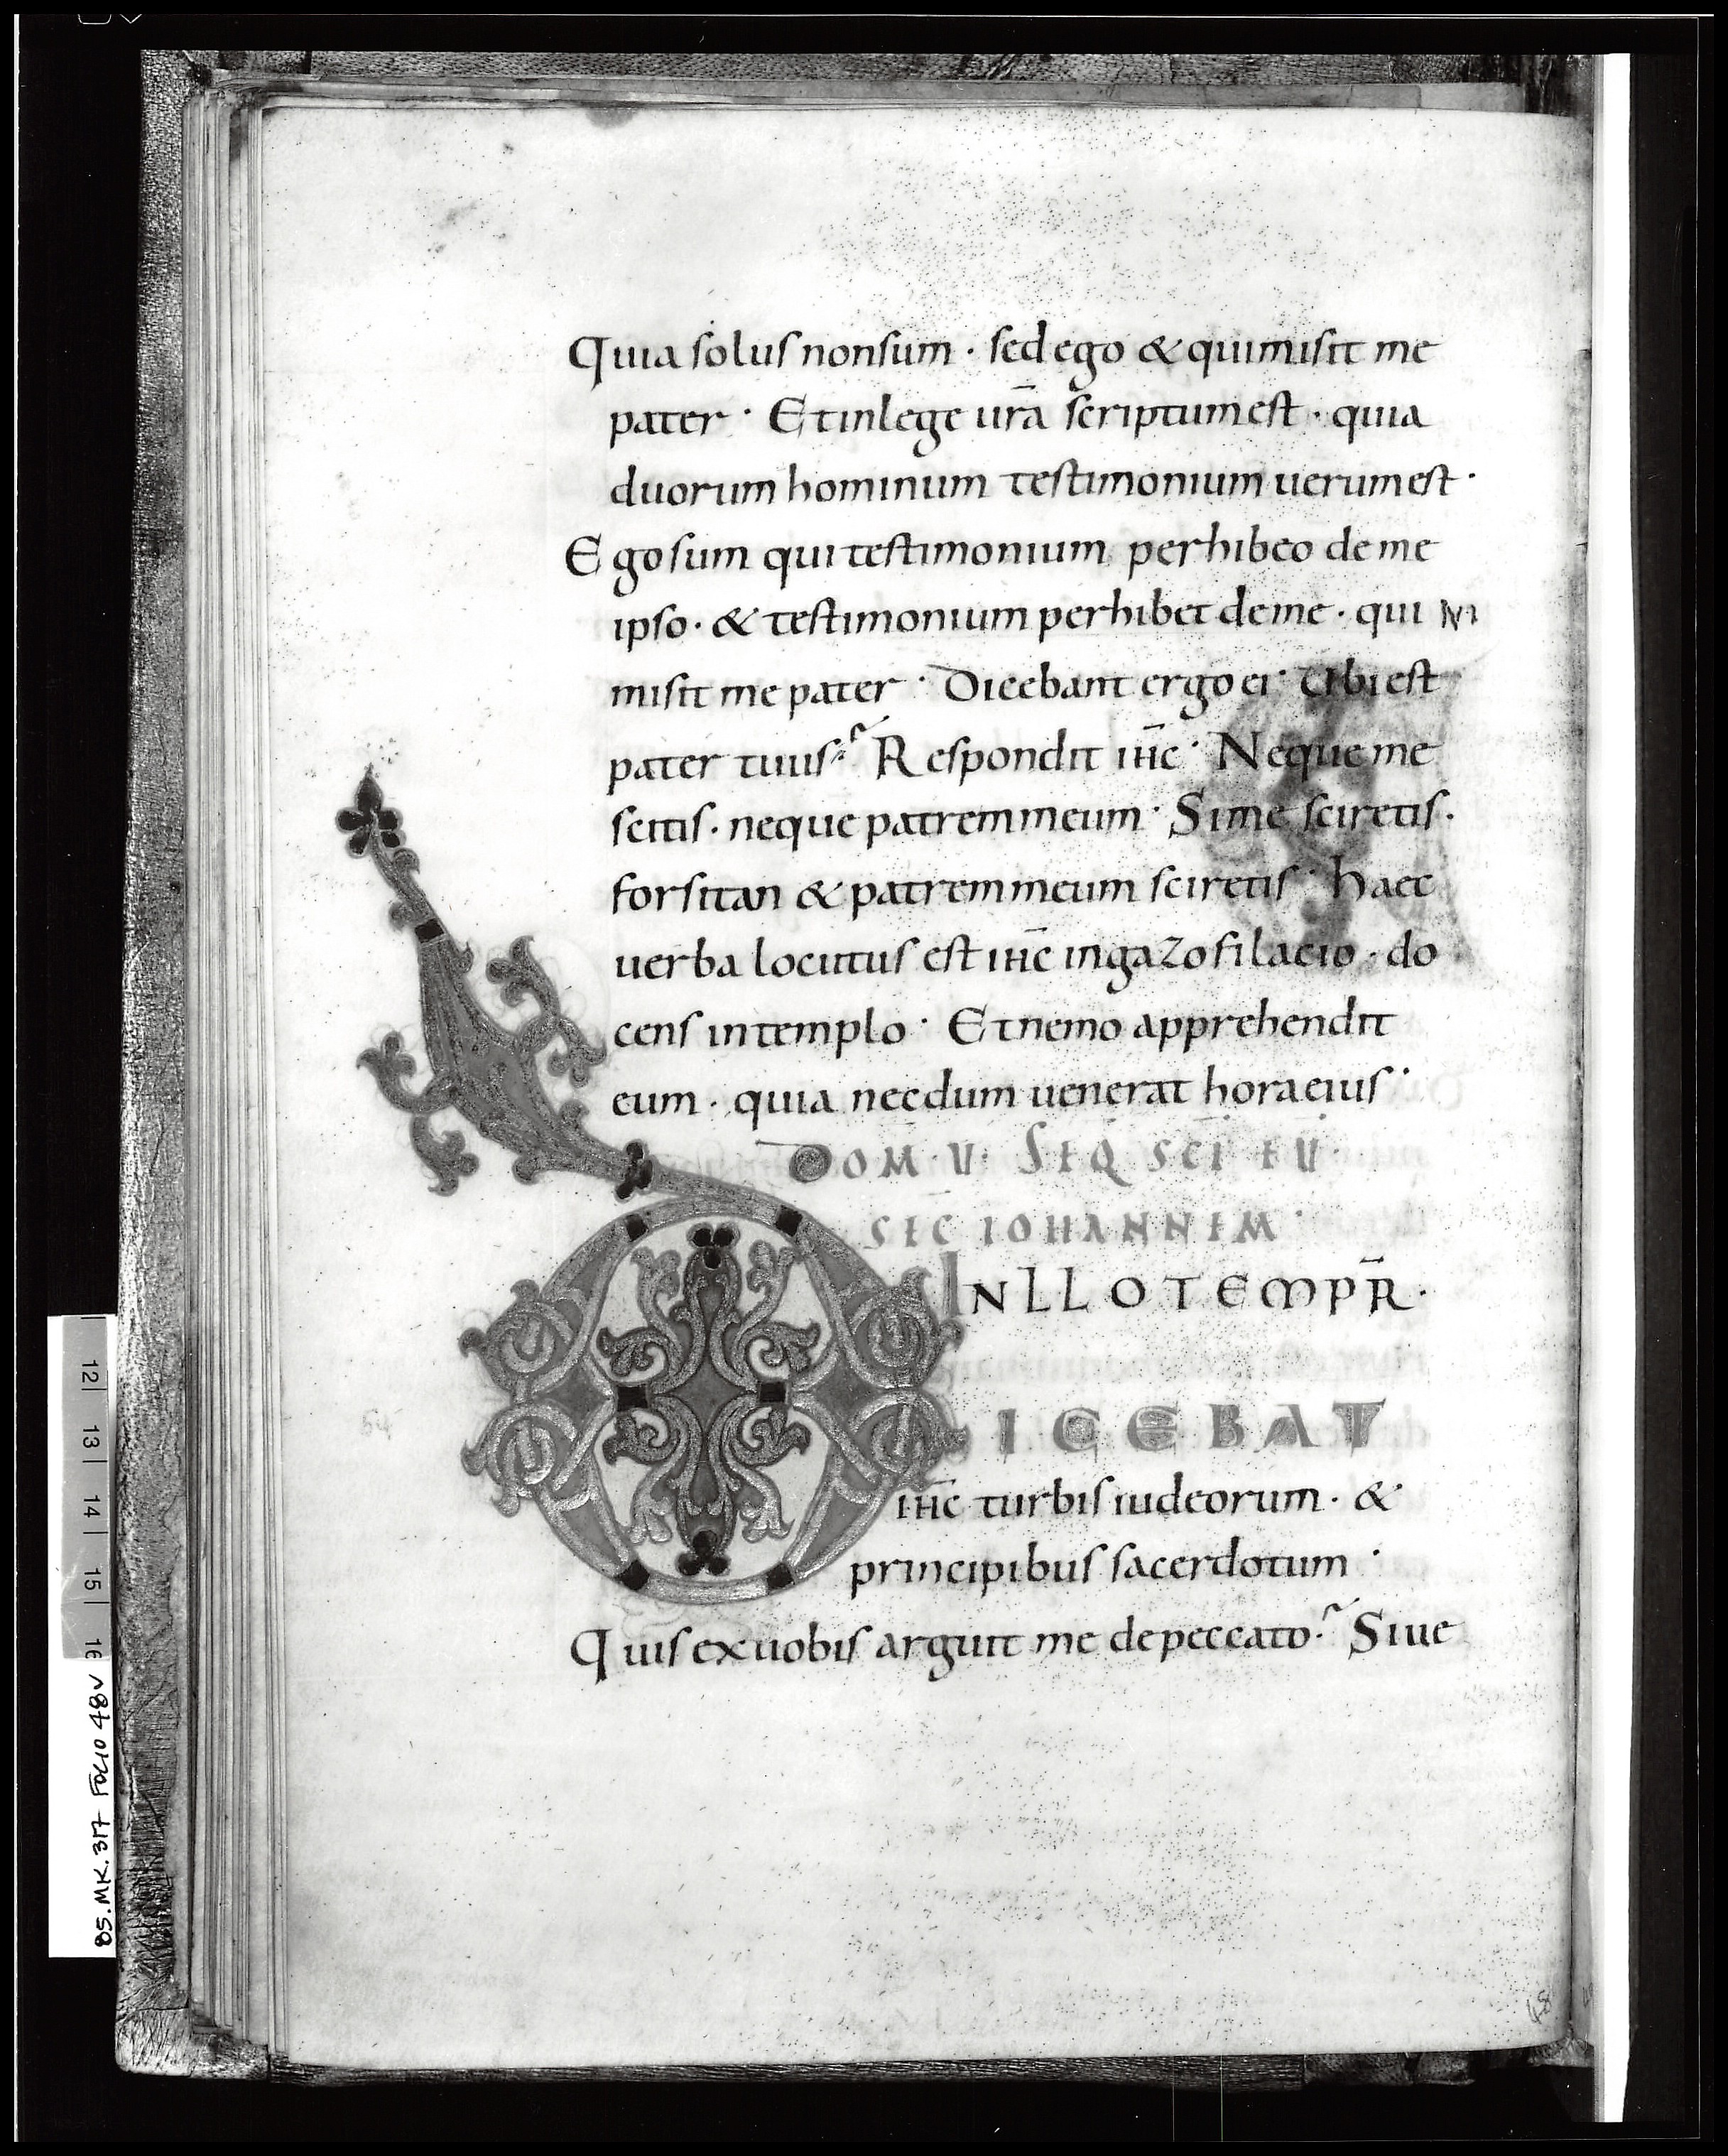 Quia solus non sum · sed ego & qui misit me
pater · Et in lege ur̄a scriptum est · quia
duorum hominum testimonium uerum est ·
Ego sum qui testimonium perhibeo de me
ipso · & testimonium perhibet de me · qui
misit me pater · Dicebant ergo ei · Ubi est
pater tuus? Respondit ih̄c · Neque me
scitis · neque patrem meum · Si me sciretis ·
forsitan & patrem meum sciretis · Haec
uerba locutus est ih̄c in gazofilacio · do
cens in templo · Et nemo apprehendit
eum · quia necdum uenerat hora eius ·
DOM · V · SEQ SC̄I EU
SEC IOHANNEM ·
IN ILLO TEMPR̄ ·
DICEBAT
ih̄c turbis iudeorum · &
principibus sacerdotum ·
Quis ex uobis arguit me de peccato? Si ue
12 13 14 15 16
85.MK.317 FOLIO 48V
64
48